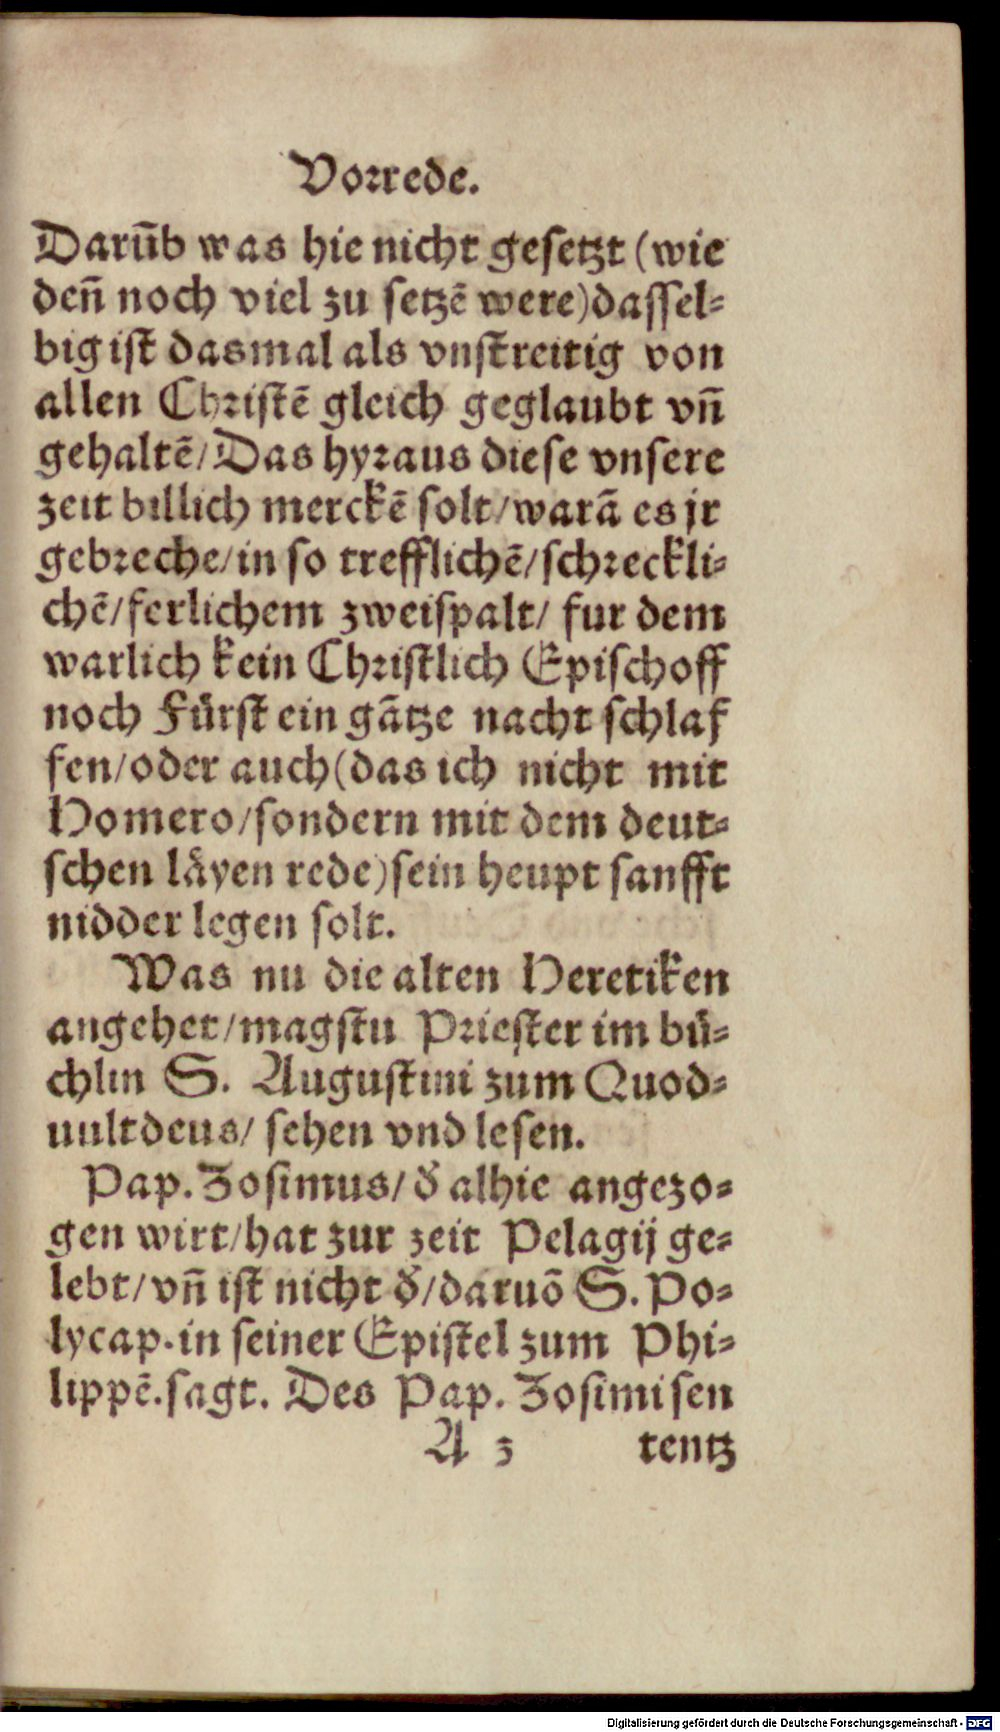 Vorrede.
Darũb was hie nicht gesetzt (wie
deñ noch viel zu setzẽ were) dassel⸗
big ist dasmal als vnstreitig von
allen Christẽ gleich geglaubt vñ
gehaltẽ/ Das hyraus diese vnsere
zeit billich merckẽ solt/ warã es jr
gebreche/ in so trefflichẽ/ schreckli⸗
chẽ/ ferlichem zweispalt/ fur dem
warlich kein Christlich Epischoff
noch Fürst ein gãtze nacht schlaf
fen/ oder auch (das ich nicht mit
Homero/ sondern mit dem deut⸗
schen läyen rede) sein heupt sanfft
nidder legen solt.
Was nu die alten Heretiken
angehet/ magstu Priester im bü⸗
chlin S. Augustini zum Quod⸗
uultdeus/ sehen vnd lesen.
Pap. Zosimus/ d̓ alhie angezo⸗
gen wirt/ hat zur zeit Pelagij ge⸗
lebt/ vñ ist nicht d̓/ daruõ S. Po⸗
lycap. in seiner Epistel zum Phi⸗
lippẽ. sagt. Des Pap. Zosimi sen
A 3 tentz
Digitalisierung gefördert durch die Deutsche Forschungsgemeinschaft - DFG